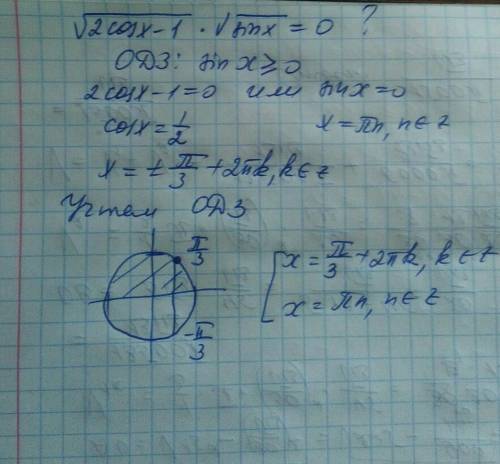 √(2cosx-1) · √(sinx) = 0 ?
ОДЗ: sin x ≥ 0
2cosx-1=0 или sinx=0
cosx = 1/2 x = πn, n∈z
x = ± π/3 + 2πk, k∈z
Учтем ОДЗ
π/3
-π/3
[ x = π/3 + 2πk, k∈z
x = πn, n∈z